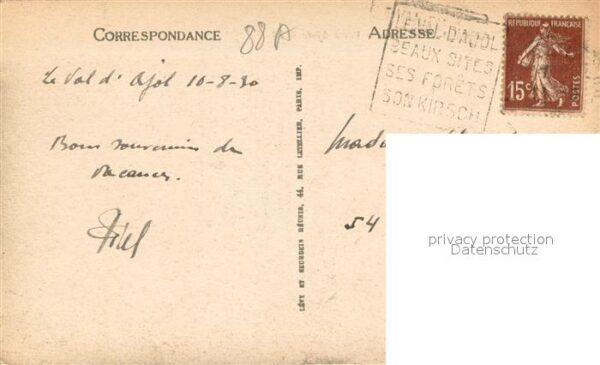 CORRESPONDANCE
88 A
ADRESSE
LE VAL D'AJOL
BEAUX SITES
SES FORÊTS
SON KIRSCH
REPUBLIQUE FRANÇAISE
15c
POSTES
Le Val d'Ajol 10-8-30
Bons souvenirs de
vacances.
54
LÉVY ET NEURDEIN RÉUNIS, 44, RUE LETELLIER, PARIS, IMP.
privacy protection
Datenschutz